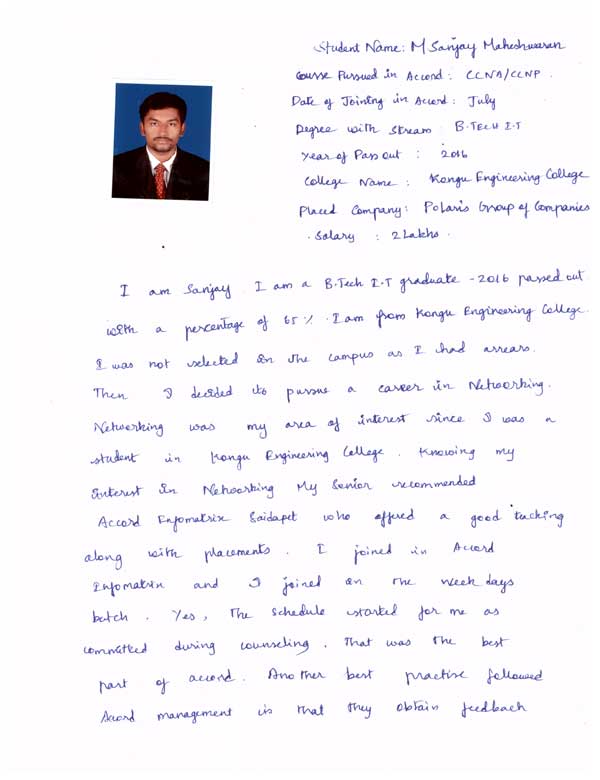 Student Name: M Sanjay Maheshwaran
Course Pursued in Accord : CCNA/CCNP .
Date of Jointing in Accord : July
Degree with Stream : B.TECH I.T
Year of Pass out : 2016
College Name : Kongu Engineering College
Placed Company: Polaris Group of Companies
. Salary : 2 Lakhs .
I am Sanjay . I am a B.Tech I.T graduate - 2016 passed out
with a percentage of 65 % . I am from Kongu Engineering College.
I was not selected in the campus as I had arrears.
Then I decided to pursue a career in Networking.
Networking was my area of interest since I was a
student in Kongu Engineering College . Knowing my
interest in Networking My Senior recommended
Accord Infomatrix Saidapet who offered a good
along with placements . I joined in Accord
Infomatrix and I joined in the week days
batch . Yes, The schedule started for me as
committed during counseling . That was the best
part of accord . Another best practise followed
Accord management is that they obtain feedback